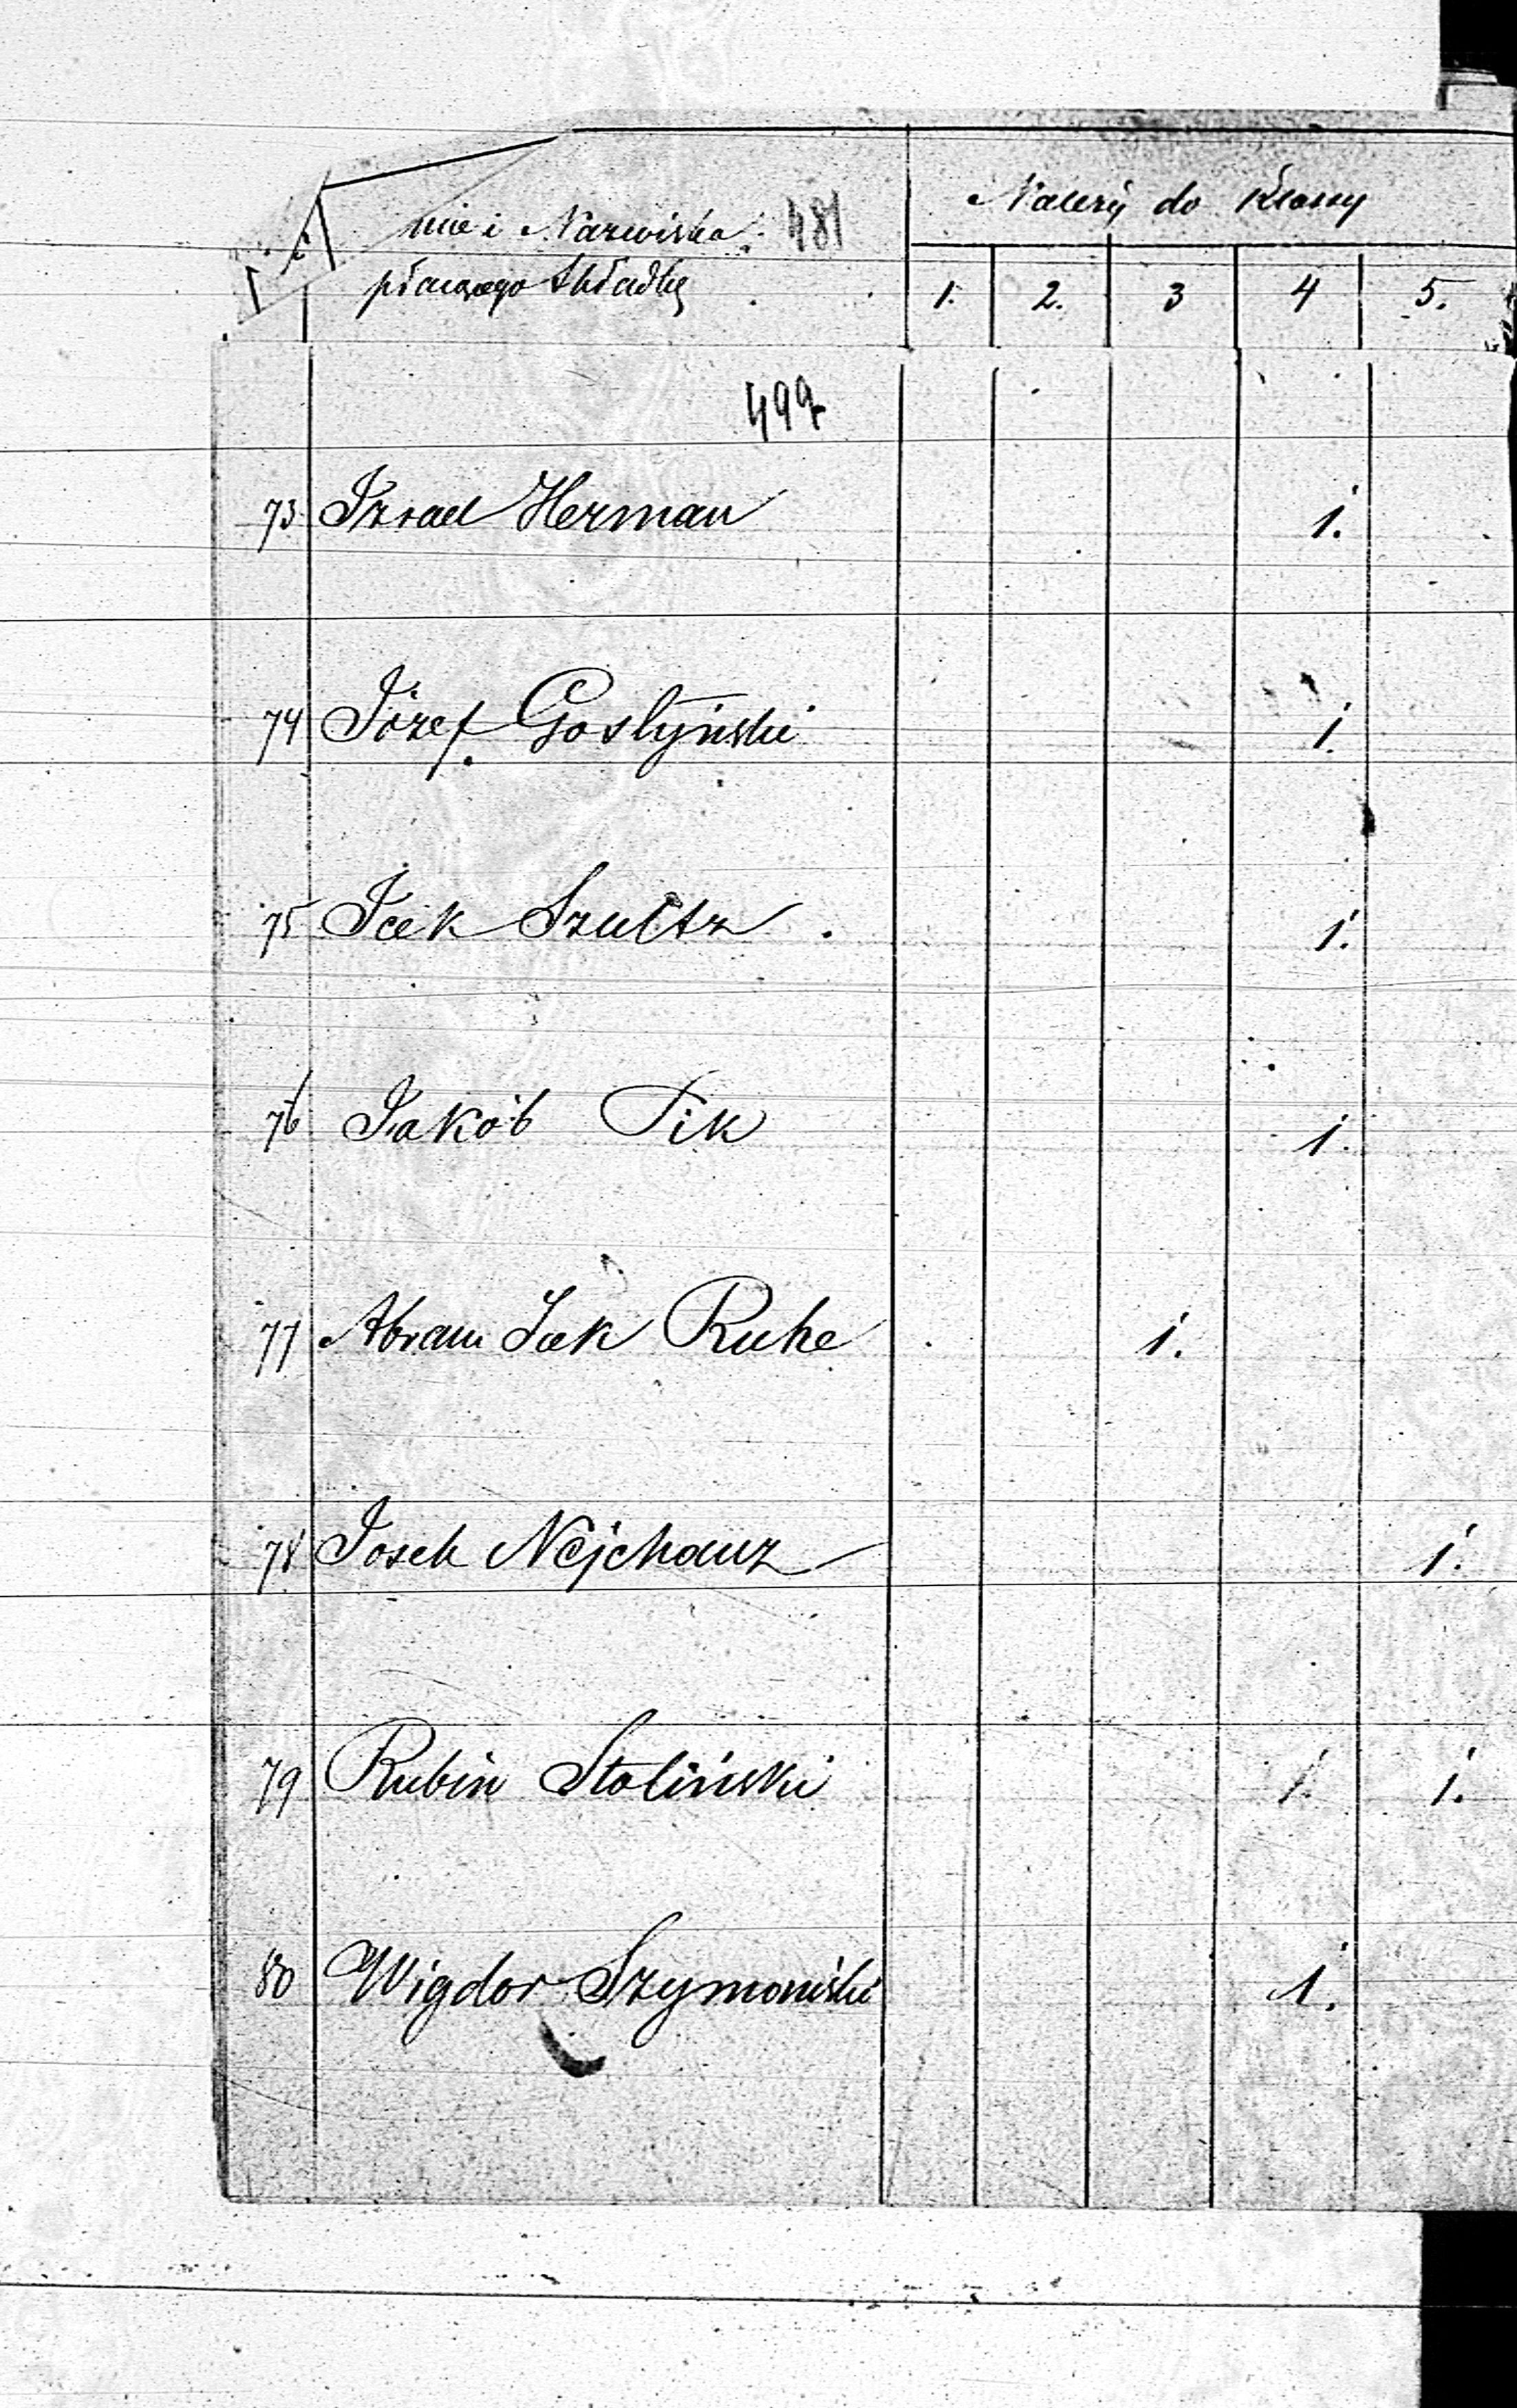 mie i Nazwiska 481 Należy do Klassy
płacącego Składkę 1. 2. 3 4 5.
497
73 Izrael Herman 1.
74 Józef Gostyński 1.
75 Icek Szultz . 1.
76 Jakób Pik 1.
77 Abram Icek Ruhe 1.
78 Josek Nejchauz 1.
79 Rubin Stoliński 1. 1.
80 Wigdor Szymoński 1.